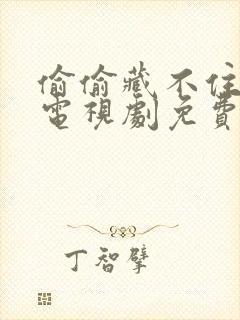 偷偷藏不住
電視劇免費
丁智擘